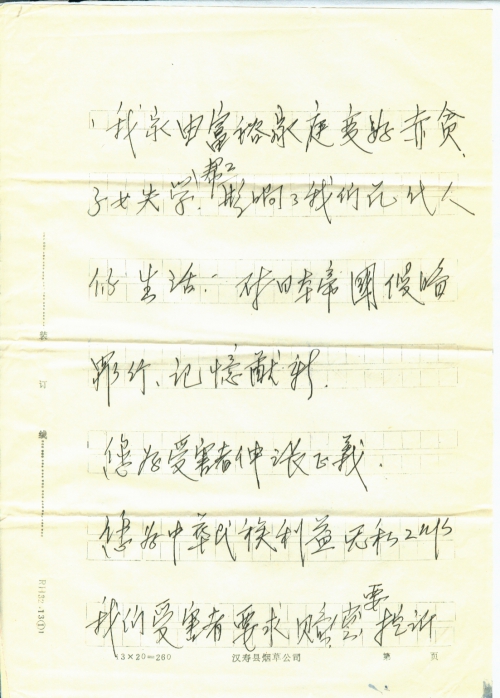 我家由富裕家庭变好赤贫、
子女失学、帮工 影响了我们几代人
的生活。对日本帝國侵略
罪行、记憶猷新.
您为受害者伸张正義.
您为中華民族利益无私工作
我们受害者要求赔偿 要控訴
装订线
13×20=260 汉寿县烟草公司 第 页